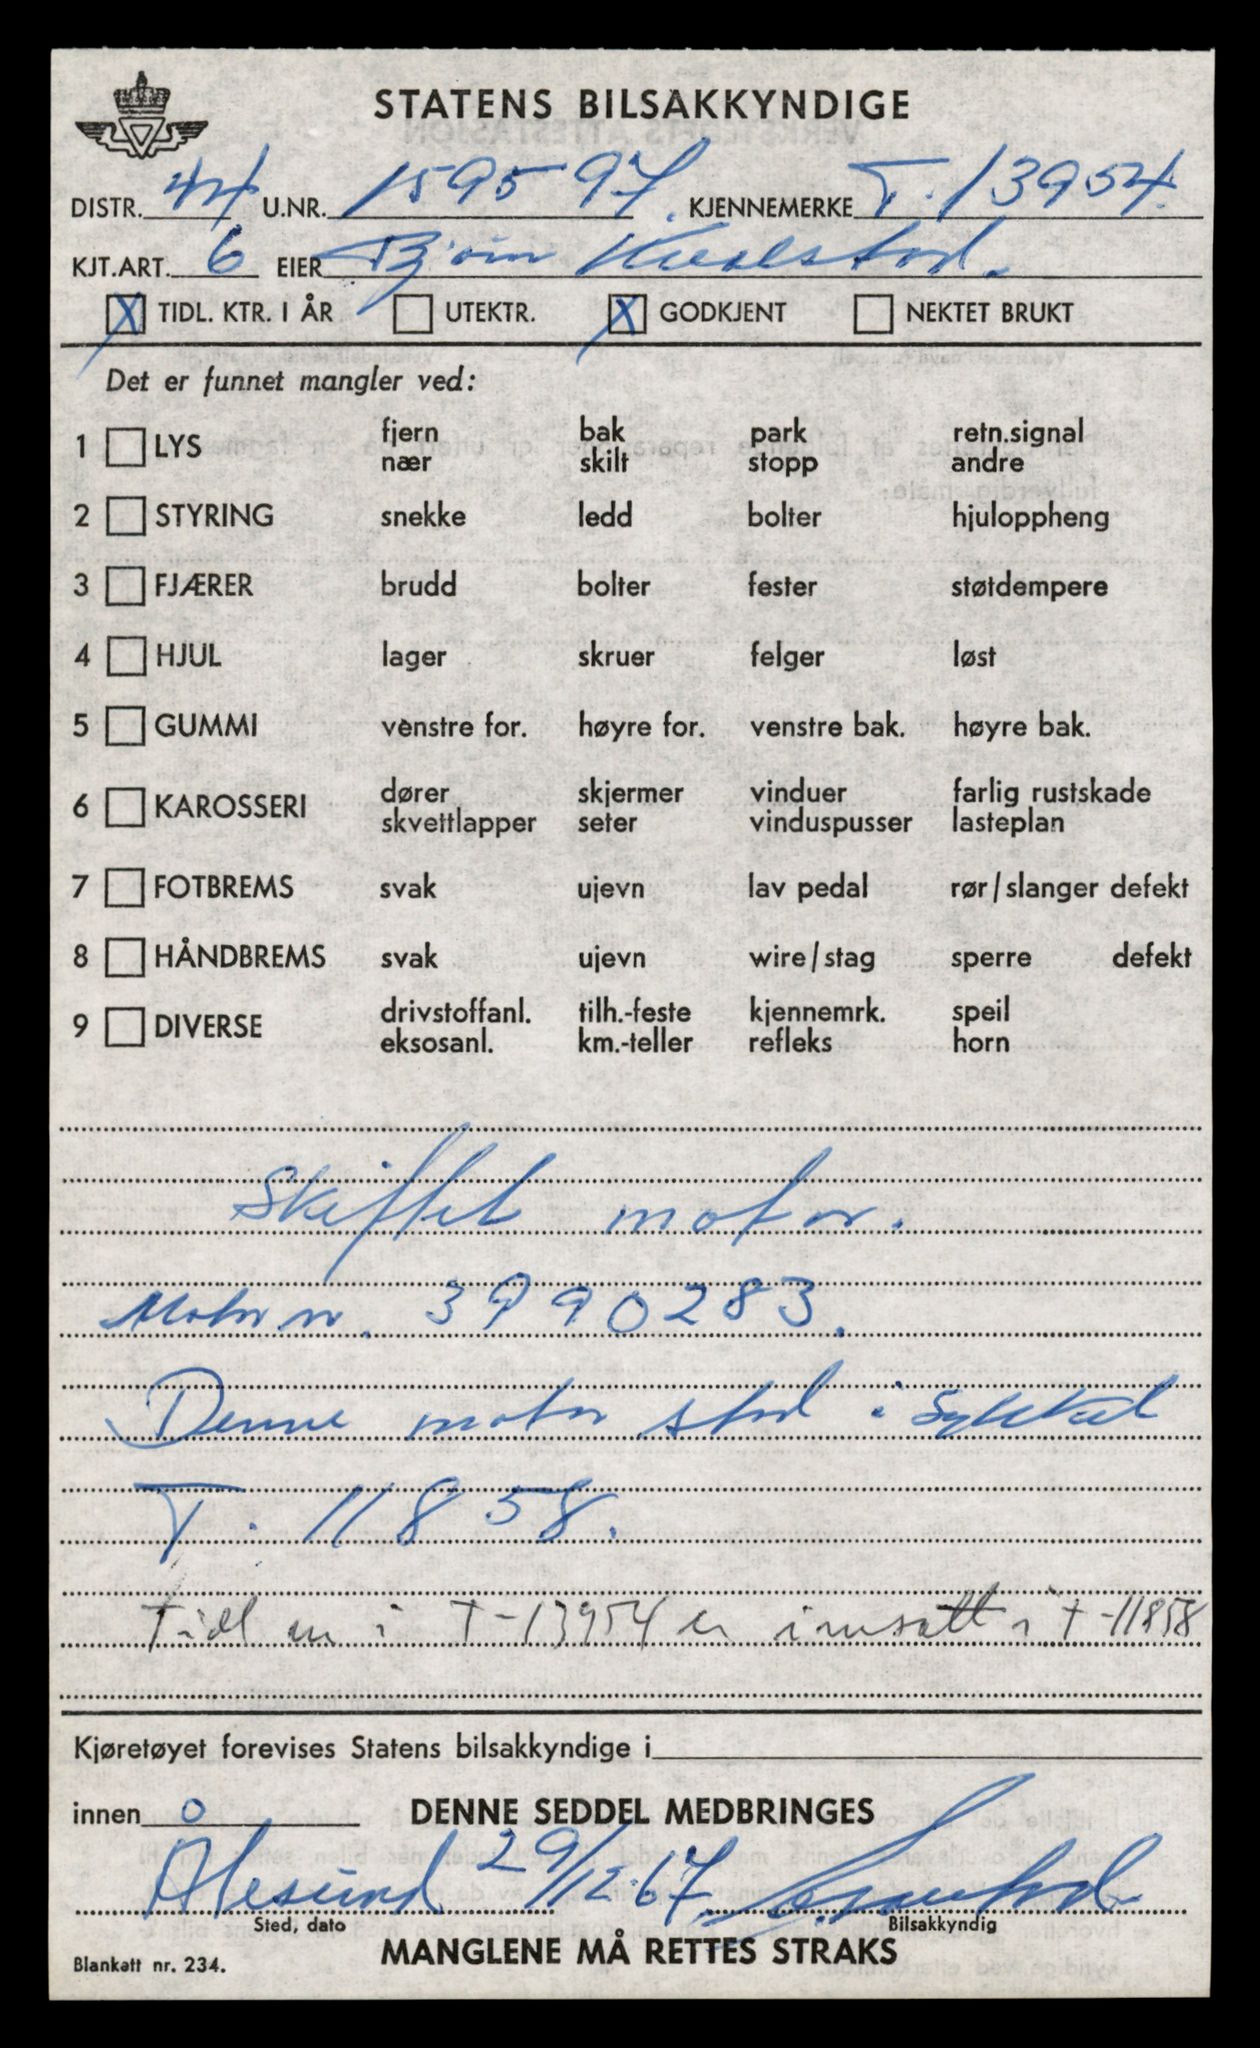 STATENS BILSAKKYNDIGE
DISTR. 44 U.NR. 159597. KJENNEMERKE T. 13954.
KJT.ART. 6 EIER Bjørn
X TIDL. KTR. I ÅR UTEKTR. X GODKJENT NEKTET BRUKT
Det er funnet mangler ved:
1 LYS fjern bak park retn.signal
nær skilt stopp andre
2 STYRING snekke ledd bolter hjuloppheng
3 FJÆRER brudd bolter fester støtdempere
4 HJUL lager skruer felger løst
5 GUMMI venstre for. høyre for. venstre bak. høyre bak.
6 KAROSSERI dører skjermer vinduer farlig rustskade
skvettlapper seter vinduspusser lasteplan
7 FOTBREMS svak ujevn lav pedal rør/slanger defekt
8 HÅNDBREMS svak ujevn wire/stag sperre defekt
9 DIVERSE drivstoffanl. tilh.-feste kjennemrk. speil
eksosanl. km.-teller refleks horn
Skiftet motor.
Motor nr. 3990283.
Denne motor stod i sykkel
T. 11858.
Tidl m i T-13954 er innsatt i T-11858
Kjøretøyet forevises Statens bilsakkyndige i
innen DENNE SEDDEL MEDBRINGES
Ålesund 29/12-67.
Sted, dato Bilsakkyndig
MANGLENE MÅ RETTES STRAKS
Blankett nr. 234.